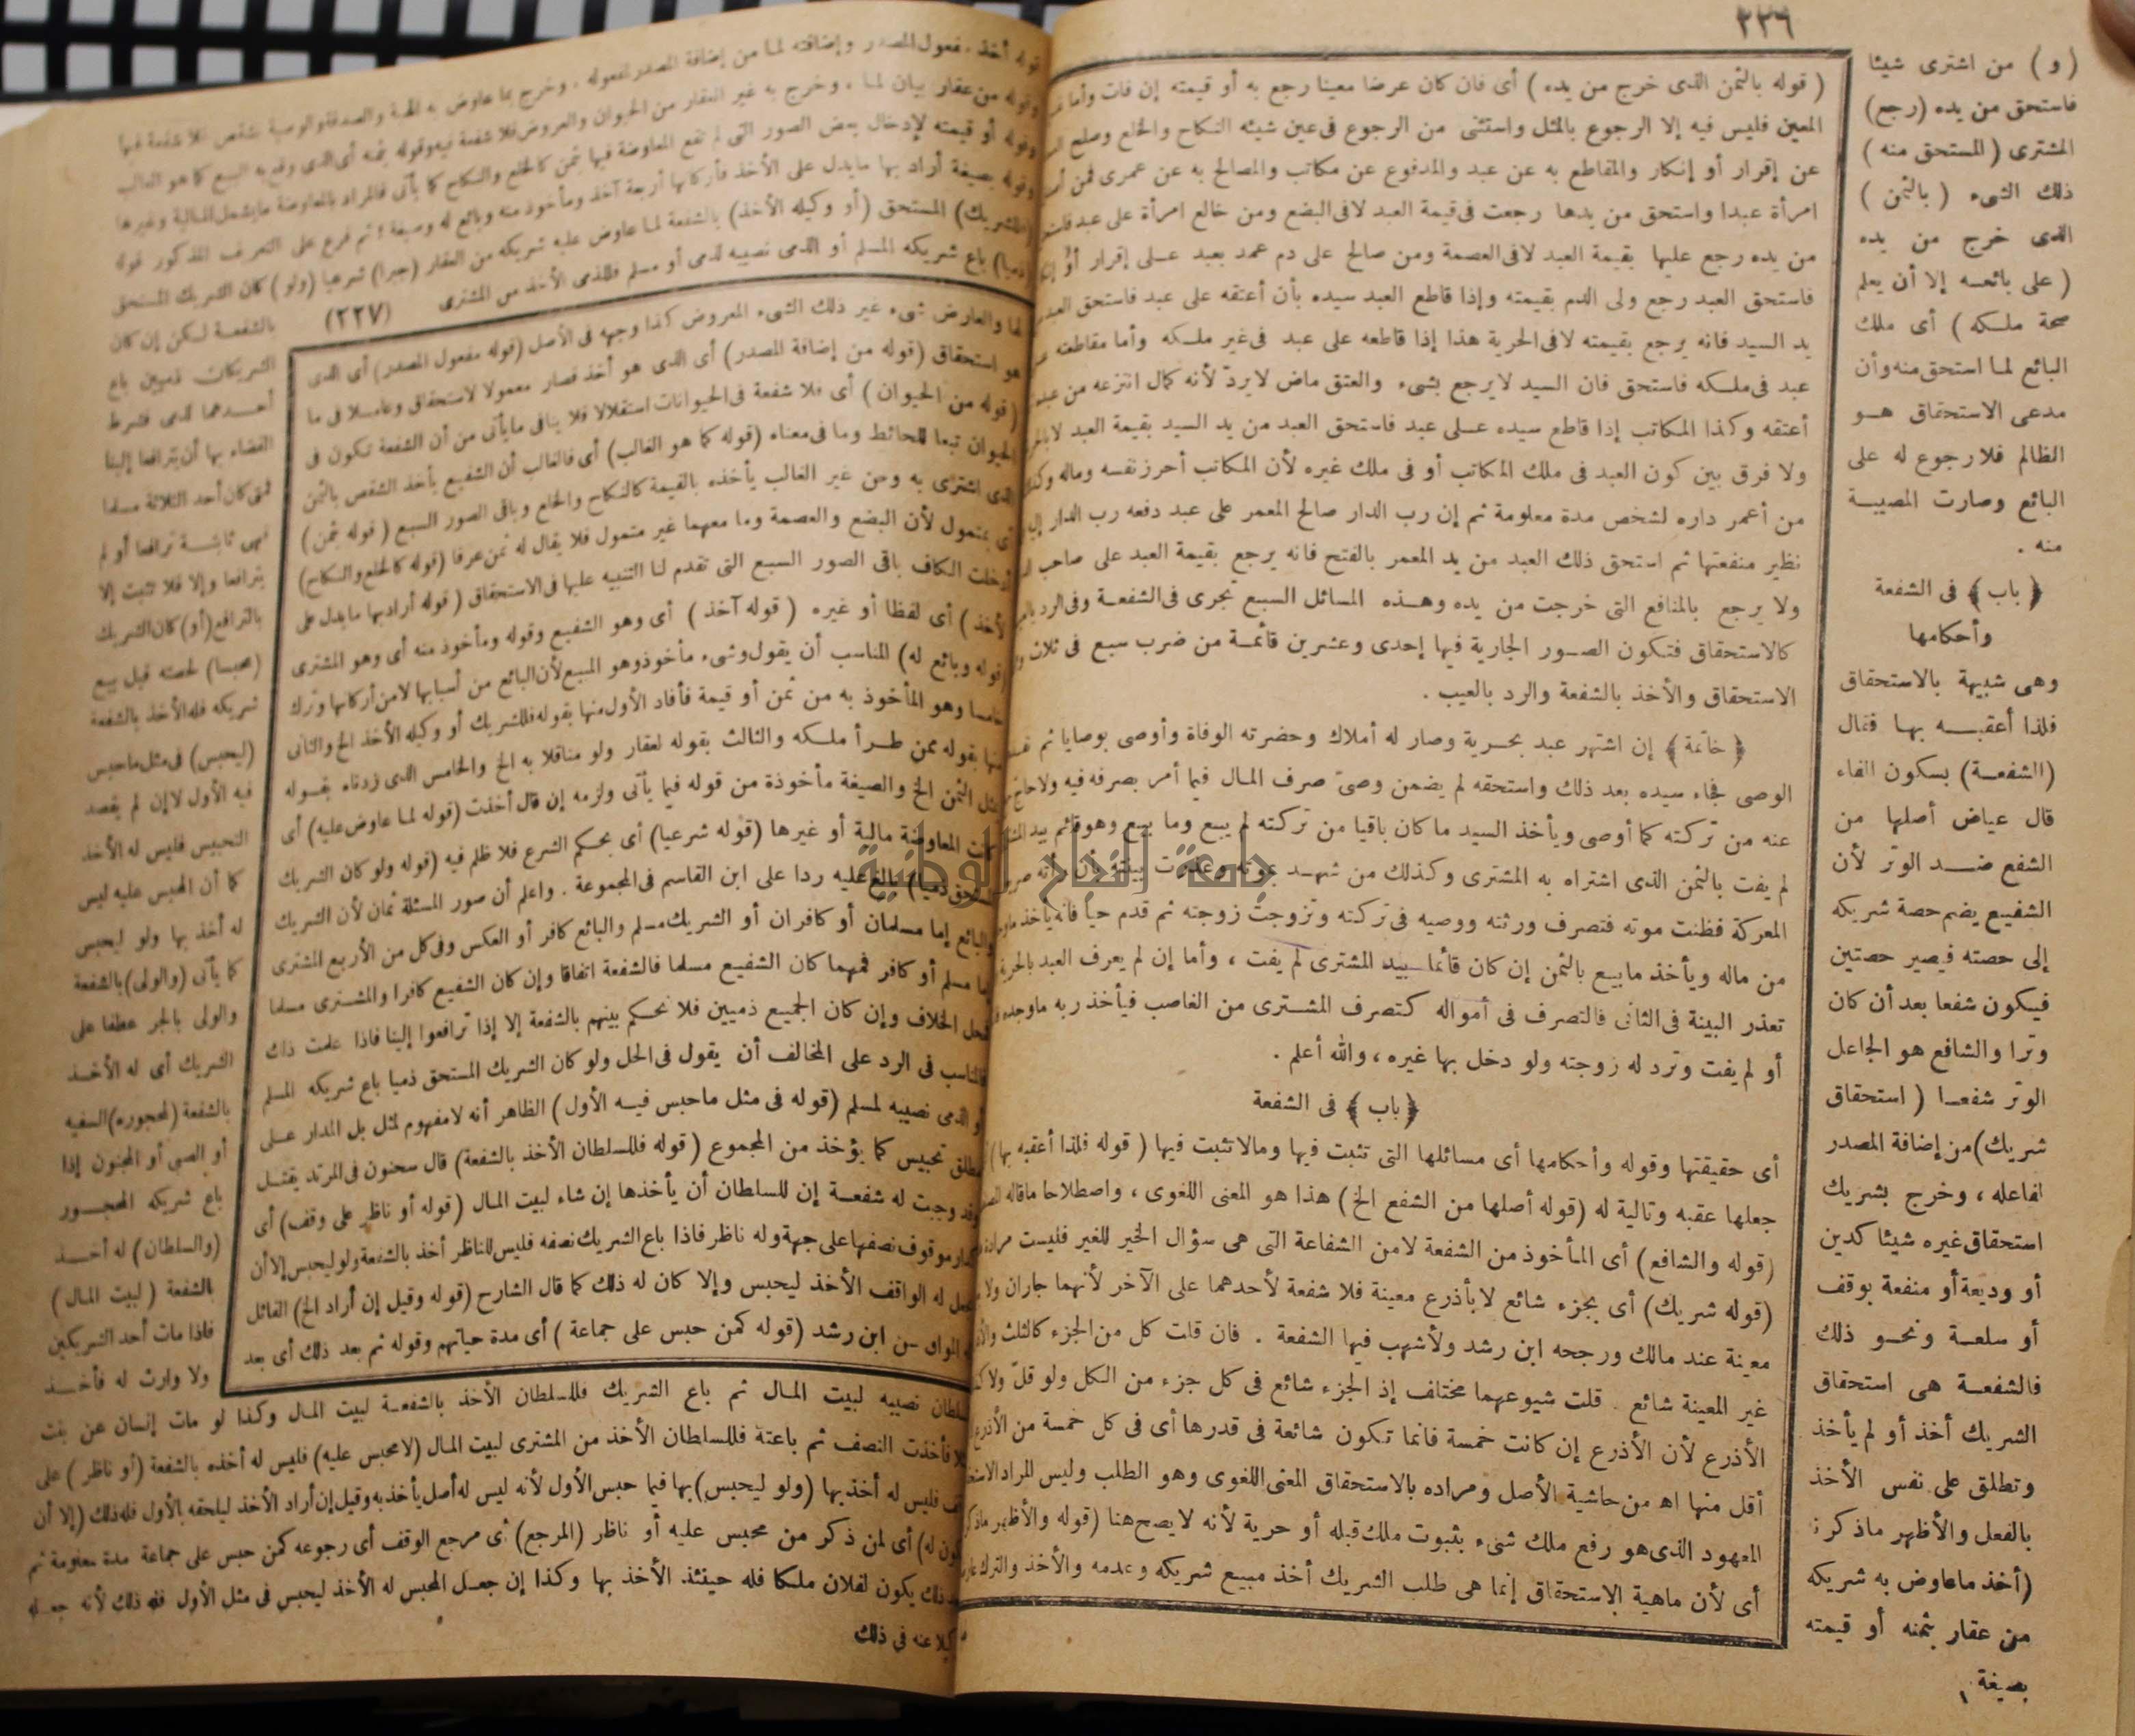 ٢٢٦
( و ) من اشترى شيئا
فاستحق من يده (رجع)
المشترى ( المستحق منه )
ذلك الشىء ( بالثمن )
الذى خرج من يده
( على بائعه إلا أن يعلم
صحة ملكه ) أى ملك
البائع لما استحق منه وأن
مدعى الاستحقاق هو
الظالم فلا رجوع له على
البائع وصارت المصيبة
منه .
﴿ باب ﴾ فى الشفعة
وأحكامها
وهى شبيهة بالاستحقاق
فلذا أعقبه بها فقال
(الشفعة) بسكون الفاء
قال عياض أصلها من
الشفع ضد الوتر لأن
الشفيع يضم حصة شريكه
إلى حصته فيصير حصتين
فيكون شفعا بعد أن كان
وترا والشافع هو الجاعل
الوتر شفعا ( استحقاق
شريك) من إضافة المصدر
لفاعله ، وخرج بشريك
استحقاق غيره شيئا كدين
أو وديعة أو منفعة بوقف
أو سلعة ونحو ذلك
فالشفعة هى استحقاق
الشريك أخذ أو لم يأخذ
وتطلق على نفس الأخذ
بالفعل والأظهر ماذكره
(أخذ ماعاوض به شريكه
من عقار بثمنه أو قيمته
بصيغة
( قوله بالثمن الذى خرج من يده ) أى فان كان عرضا معينا رجع به أو قيمته إن فات وأما
المعين فليس فيه إلا الرجوع بالمثل واستثنى من الرجوع فى عين شيئه النكاح والخلع وصلح
عن إقرار أو إنكار والمقاطع به عن عبد والمدفوع عن مكاتب والمصالح به عن عمرى فمن
امرأة عبدا واستحق من يدها رجعت فى قيمة العبد لا فى البضع ومن خالع امرأة على عبد
من يده رجع عليها بقيمة العبد لا فى العصمة ومن صالح على دم عمد بعبد على إقرار أو
فاستحق العبد رجع ولى الدم بقيمته وإذا قاطع العبد سيده بأن أعتقه على عبد فاستحق العبد
يد السيد فانه يرجع بقيمته لا فى الحرية هذا إذا قاطعه على عبد فى غير ملكه وأما مقاطعته
عبد فى ملكه فاستحق فان السيد لايرجع بشىء والعتق ماض لايردّ لأنه كمال انتزعه من عبده
أعتقه وكذا المكاتب إذا قاطع سيده على عبد فاستحق العبد من يد السيد بقيمة العبد
ولا فرق بين كون العبد فى ملك المكاتب أو فى ملك غيره لأن المكاتب أحرز نفسه وماله
من أعمر داره لشخص مدة معلومة ثم إن رب الدار صالح المعمر على عبد دفعه رب الدار
نظير منفعتها ثم استحق ذلك العبد من يد المعمر بالفتح فانه يرجع بقيمة العبد على صاحب
ولا يرجع بالمنافع التى خرجت من يده وهذه المسائل السبع تجرى فى الشفعة وفى الرد
كالاستحقاق فتكون الصور الجارية فيها إحدى وعشرين قائمة من ضرب سبع فى ثلاث
الاستحقاق والأخذ بالشفعة والرد بالعيب .
﴿ خاتمة ﴾ إن اشتهر عبد بحرية وصار له أملاك وحضرته الوفاة وأوصى بوصايا ثم
الوصى فجاء سيده بعد ذلك واستحقه لم يضمن وصىّ صرف المال فيما أمر بصرفه فيه ولا
عنه من تركته كما أوصى ويأخذ السيد ما كان باقيا من تركته لم يبع وما بيع وهو قائم بيد
لم يفت بالثمن الذى اشتراه به المشترى وكذلك من شهد بموته وعذرت بينته بأن رأته
المعركة فظنت موته فتصرف ورثته ووصيه فى تركته وتزوجت زوجته ثم قدم حيا فانه يأخذ
من ماله ويأخذ مابيع بالثمن إن كان قائما بيد المشترى لم يفت ، وأما إن لم يعرف العبد بالحرية
تعذر البينة فى الثانى فالتصرف فى أمواله كتصرف المشترى من الغاصب فيأخذ ربه ماوجده
أو لم يفت وترد له زوجته ولو دخل بها غيره ، والله أعلم .
﴿ باب ﴾ فى الشفعة
أى حقيقتها وقوله وأحكامها أى مسائلها التى تثبت فيها ومالا تثبت فيها ( قوله فلذا أعقبه بها )
جعلها عقبه وتالية له (قوله أصلها من الشفع الخ) هذا هو المعنى اللغوى ، واصطلاحا ماقاله
(قوله والشافع) أى المأخوذ من الشفعة لا من الشفاعة التى هى سؤال الخير للغير فليست
(قوله شريك) أى بجزء شائع لا بأذرع معينة فلا شفعة لأحدهما على الآخر لأنهما جاران ولا
معينة عند مالك ورجحه ابن رشد ولأشهب فيها الشفعة . فان قلت كل من الجزء كالثلث
غير المعينة شائع . قلت شيوعهما مختلف إذ الجزء شائع فى كل جزء من الكل ولو قلّ ولا
الأذرع لأن الأذرع إن كانت خمسة فانما تكون شائعة فى قدرها أى فى كل خمسة من الأذرع
أقل منها اه من حاشية الأصل ومراده بالاستحقاق المعنى اللغوى وهو الطلب وليس المراد
المعهود الذى هو رفع ملك شىء بثبوت ملك قبله أو حرية لأنه لا يصح هنا (قوله والأظهر
أى لأن ماهية الاستحقاق إنما هى طلب الشريك أخذ مبيع شريكه وعدمه والأخذ والترك
قوله أخذ مفعول المصدر وإضافته لما من إضافة المصدر لمفعوله ، وخرج بما عاوض به الهبة والصدقة والوصية بشقص فلا شفعة فيها
وقوله من عقار بيان لما ، وخرج به غير العقار من الحيوان والعروض فلا شفعة فيه وقوله بثمنه أى الذى وقع به البيع كما هو الغالب
وقوله أو قيمته لإدخال بعض الصور التى لم تقع المعاوضة فيها بثمن كالخلع والنكاح كما يأتى فالمراد بالمعاوضة مايشمل المالية وغيرها
وقوله بصيغة أراد بها مايدل على الأخذ فأركانها أربعة آخذ ومأخوذ منه وبائع له وصيغة ثم فرع على التعريف المذكور قوله
(فللشريك) المستحق (أو وكيله الأخذ) بالشفعة لما عاوض عليه شريكه من العقار (جبرا) شرعيا (ولو) كان الشريك المستحق
ذميا) باع شريكه المسلم أو الذمى نصيبه لذمى أو مسلم فللذمى الأخذ من المشترى
(٢٢٧)
بالشفعة لكن إن كان
الشريكان ذميين باع
أحدهما لذمى فشرط
القضاء بها أن يترافعا إلينا
فمتى كان أحد الثلاثة مسلما
فهى ثابتة ترافعا أو لم
يترافعا وإلا فلا تثبت إلا
بالترافع (أو) كان الشريك
(محبسا) لحصته قبل بيع
شريكه فله الأخذ بالشفعة
(ليحبس) فى مثل ماحبس
فيه الأول لا إن لم يقصد
التحبيس فليس له الأخذ
كما أن المحبس عليه ليس
له أخذ بها ولو ليحبس
كما يأتى (والولى) بالشفعة
والولى بالجر عطفا على
الشريك أى له الأخذ
بالشفعة (لمحجوره) السفيه
أو الصبى أو المجنون إذا
باع شريكه المحجور
(والسلطان) له أخذ
بالشفعة ( لبيت المال )
فاذا مات أحد الشريكين
ولا وارث له فأخذ
لما والعارض شىء غير ذلك الشىء المعروض كذا وجهه فى الأصل (قوله مفعول المصدر) أى الذى
هو استحقاق (قوله من إضافة المصدر) أى الذى هو أخذ فصار معمولا لاستحقاق وعاملا فى ما
(قوله من الحيوان) أى فلا شفعة فى الحيوانات استقلالا فلا ينافى مايأتى من أن الشفعة تكون فى
الحيوان تبعا للحائط وما فى معناه (قوله كما هو الغالب) أى فالغالب أن الشفيع يأخذ الشقص بالثمن
الذى اشترى به ومن غير الغالب يأخذه بالقيمة كالنكاح والخلع وباقى الصور السبع ( قوله بثمن )
أى بمتمول لأن البضع والعصمة وما معهما غير متمول فلا يقال له ثمن عرفا (قوله كالخلع والنكاح)
أدخلت الكاف باقى الصور السبع التى تقدم لنا التنبيه عليها فى الاستحقاق ( قوله أراد بها مايدل على
الأخذ ) أى لفظا أو غيره ( قوله آخذ ) أى وهو الشفيع وقوله ومأخوذ منه أى وهو المشترى
(قوله وبائع له) المناسب أن يقول وشىء مأخوذ وهو المبيع لأن البائع من أسبابها لا من أركانها وترك
خامسا وهو المأخوذ به من ثمن أو قيمة فأفاد الأول منها بقوله فللشريك أو وكيله الأخذ الخ والثانى
منها بقوله ممن طرأ ملكه والثالث بقوله لعقار ولو مناقلا به الخ والخامس الذى زدناه بقوله
بمثل الثمن الخ والصيغة مأخوذة من قوله فيما يأتى ولزمه إن قال أخذت (قوله لما عاوض عليه) أى
كانت المعاوضة مالية أو غيرها (قوله شرعيا) أى بحكم الشرع فلا ظلم فيه (قوله ولو كان الشريك
المستحق ذميا) بالغ عليه ردا على ابن القاسم فى المجموعة . واعلم أن صور المسئلة ثمان لأن الشريك
والبائع إما مسلمان أو كافران أو الشريك مسلم والبائع كافر أو العكس وفى كل من الأربع المشترى
إما مسلم أو كافر فمهما كان الشفيع مسلما فالشفعة اتفاقا وإن كان الشفيع كافرا والمشترى مسلما
فمحل الخلاف وإن كان الجميع ذميين فلا نحكم بينهم بالشفعة إلا إذا ترافعوا إلينا فاذا علمت ذلك
فالمناسب فى الرد على المخالف أن يقول فى الحل ولو كان الشريك المستحق ذميا باع شريكه المسلم
أو الذمى نصيبه لمسلم (قوله فى مثل ماحبس فيه الأول) الظاهر أنه لا مفهوم لمثل بل المدار على
مطلق تحبيس كما يؤخذ من المجموع ( قوله فللسلطان الأخذ بالشفعة) قال سحنون فى المرتد يقتل
وقد وجبت له شفعة إن للسلطان أن يأخذها إن شاء لبيت المال (قوله أو ناظر على وقف) أى
كدار موقوف نصفها على جهة وله ناظر فاذا باع الشريك نصفه فليس للناظر أخذ بالشفعة ولو ليحبس إلا أن
يجعل له الواقف الأخذ ليحبس وإلا كان له ذلك كما قال الشارح (قوله وقيل إن أراد الخ) القائل
له المواق عن ابن رشد (قوله كمن حبس على جماعة ) أى مدة حياتهم وقوله ثم بعد ذلك أى بعد
السلطان نصيبه لبيت المال ثم باع الشريك فللسلطان الأخذ بالشفعة لبيت المال وكذا لو مات إنسان عن بنت
مثلا فأخذت النصف ثم باعته فللسلطان الأخذ من المشترى لبيت المال (لا محبس عليه) فليس له أخذه بالشفعة (أو ناظر ) على
وقف فليس له أخذ بها (ولو ليحبس) بها فيما حبس الأول لأنه ليس له أصل يأخذ به وقيل إن أراد الأخذ ليلحقه بالأول فله ذلك (إلا أن
يكون له) أى لمن ذكر من محبس عليه أو ناظر (المرجع) أى مرجع الوقف أى رجوعه كمن حبس على جماعة مدة معلومة ثم
بعد ذلك يكون لفلان ملكا فله حينئذ الأخذ بها وكذا إن جعل المحبس له الأخذ ليحبس فى مثل الأول فله ذلك لأنه جعله
وكيلا عنه فى ذلك
جامعة النجاح الوطنية